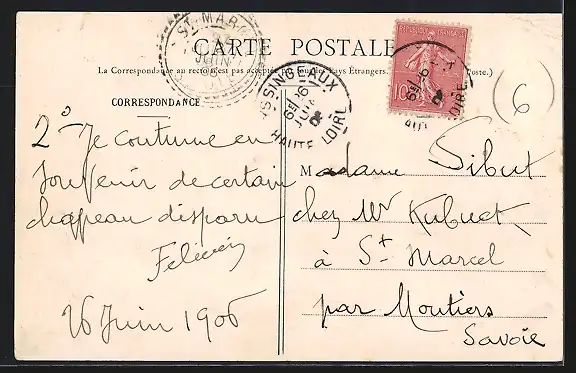 CARTE POSTALE
La Correspondance au recto n'est pas acceptée par tous les Pays Étrangers. Poste.)
CORRESPONDANCE
2° Je continue en
souvenir de certain
chapeau disparu
26 Juin 1906
Madame Sibut
chez Mr
à St Marcel
par Moutiers
Savoie
6
ST MAR
JUIN
YSSINGEAUX
JUIN
HAUTE LOIRE
REPUBLIQUE FRANÇAISE
10
LOIRE